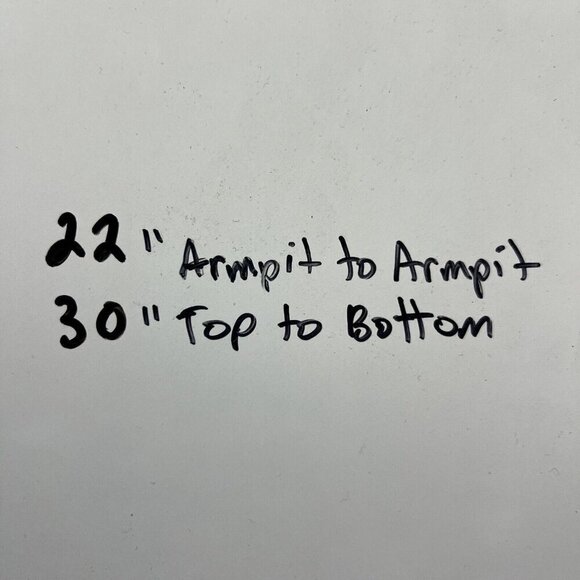 22" Armpit to Armpit
30" Top to Bottom